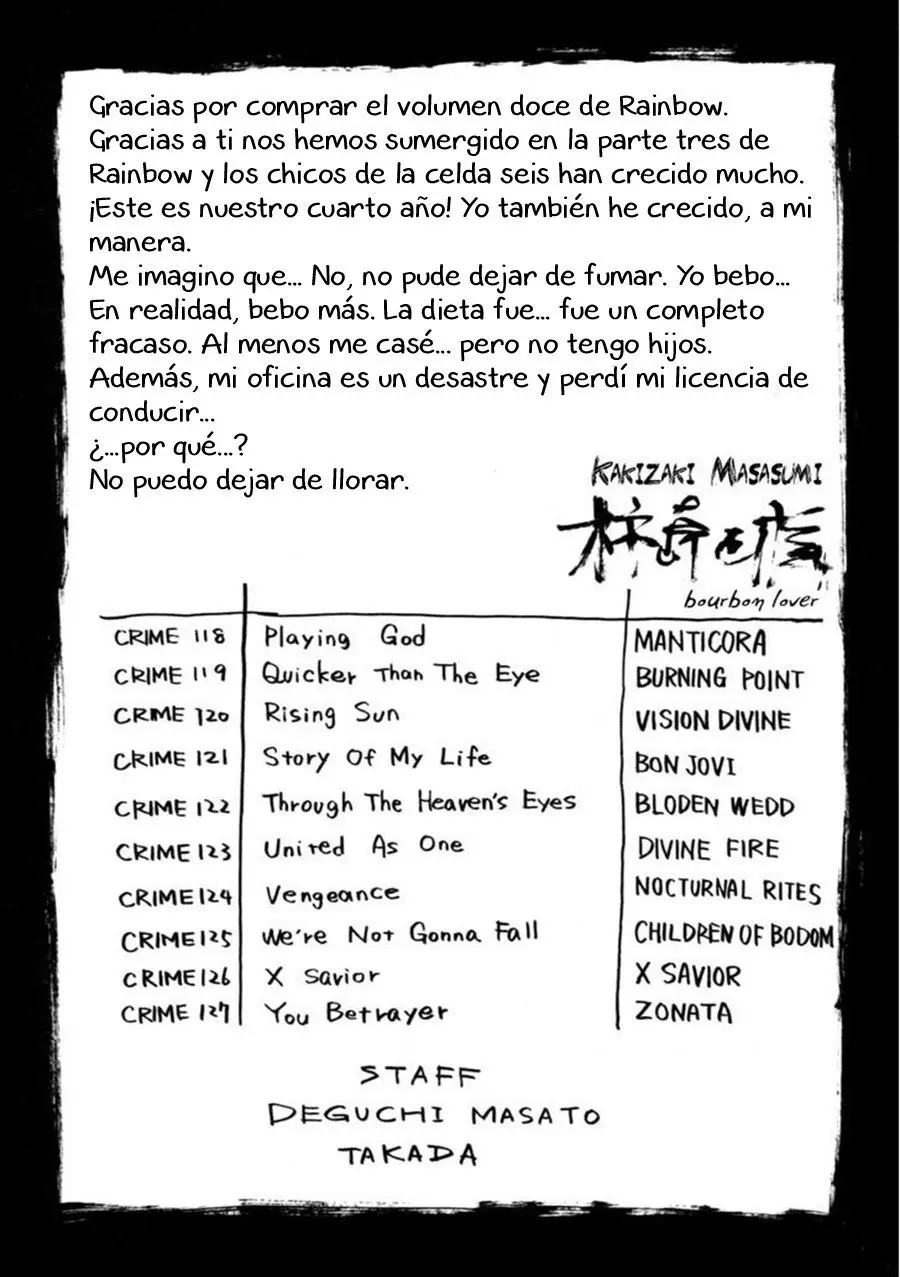 Gracias por comprar el volumen doce de Rainbow.
Gracias a ti nos hemos sumergido en la parte tres de
Rainbow y los chicos de la celda seis han crecido mucho.
¡Este es nuestro cuarto año! Yo también he crecido, a mi
manera.
Me imagino que... No, no pude dejar de fumar. Yo bebo...
En realidad, bebo más. La dieta fue... fue un completo
fracaso. Al menos me casé... pero no tengo hijos.
Además, mi oficina es un desastre y perdí mi licencia de
conducir...
¿...por qué...?
No puedo dejar de llorar.
KAKIZAKI MASASUMI
bourbon lover
CRIME 118 Playing God MANTICORA
CRIME 119 Quicker Than The Eye BURNING POINT
CRIME 120 Rising Sun VISION DIVINE
CRIME 121 Story Of My Life BON JOVI
CRIME 122 Through The Heaven's Eyes BLODEN WEDD
CRIME 123 United As One DIVINE FIRE
CRIME 124 Vengeance NOCTURNAL RITES
CRIME 125 We're Not Gonna Fall CHILDREN OF BODOM
CRIME 126 X Savior X SAVIOR
CRIME 127 You Betrayer ZONATA
STAFF
DEGUCHI MASATO
TAKADA